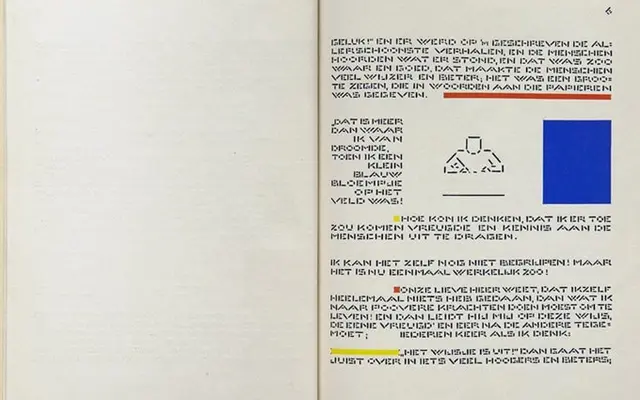 GELUK!" EN ER WERD OP 'N GESCHREVEN DE AL-
LERSCHOONSTE VERHALEN, EN DE MENSCHEN
HOORDEN WAT ER STOND, EN DAT WAS ZOO
WAAR EN GOED, DAT MAAKTE DE MENSCHEN
VEEL WIJZER EN BETER; HET WAS EEN GROO-
TE ZEGEN, DIE IN WOORDEN AAN DIE PAPIEREN
WAS GEGEVEN.
„DAT IS MEER
DAN WAAR
IK VAN
DROOMDE,
TOEN IK EEN
KLEIN
BLAUW
BLOEMPJE
OP HET
VELD WAS!
HOE KON IK DENKEN, DAT IK ER TOE
ZOU KOMEN VREUGDE EN KENNIS AAN DE
MENSCHEN UIT TE DRAGEN.
IK KAN HET ZELF NOG NIET BEGRIJPEN! MAAR
HET IS NU EENMAAL WERKELIJK ZOO!
ONZE LIEVE HEER WEET, DAT IKZELF
HEELEMAAL NIETS HEB GEDAAN, DAN WAT IK
NAAR POOVERE KRACHTEN DOEN MOEST OM TE
LEVEN! EN DAN LEIDT HIJ MIJ OP DEZE WIJS,
DE EENE VREUGD' EN EER NA DE ANDERE TEGE-
MOET; IEDEREN KEER ALS IK DENK:
„HET WIJSJE IS UIT!" DAN GAAT HET
JUIST OVER IN IETS VEEL HOOGERS EN BETERS;